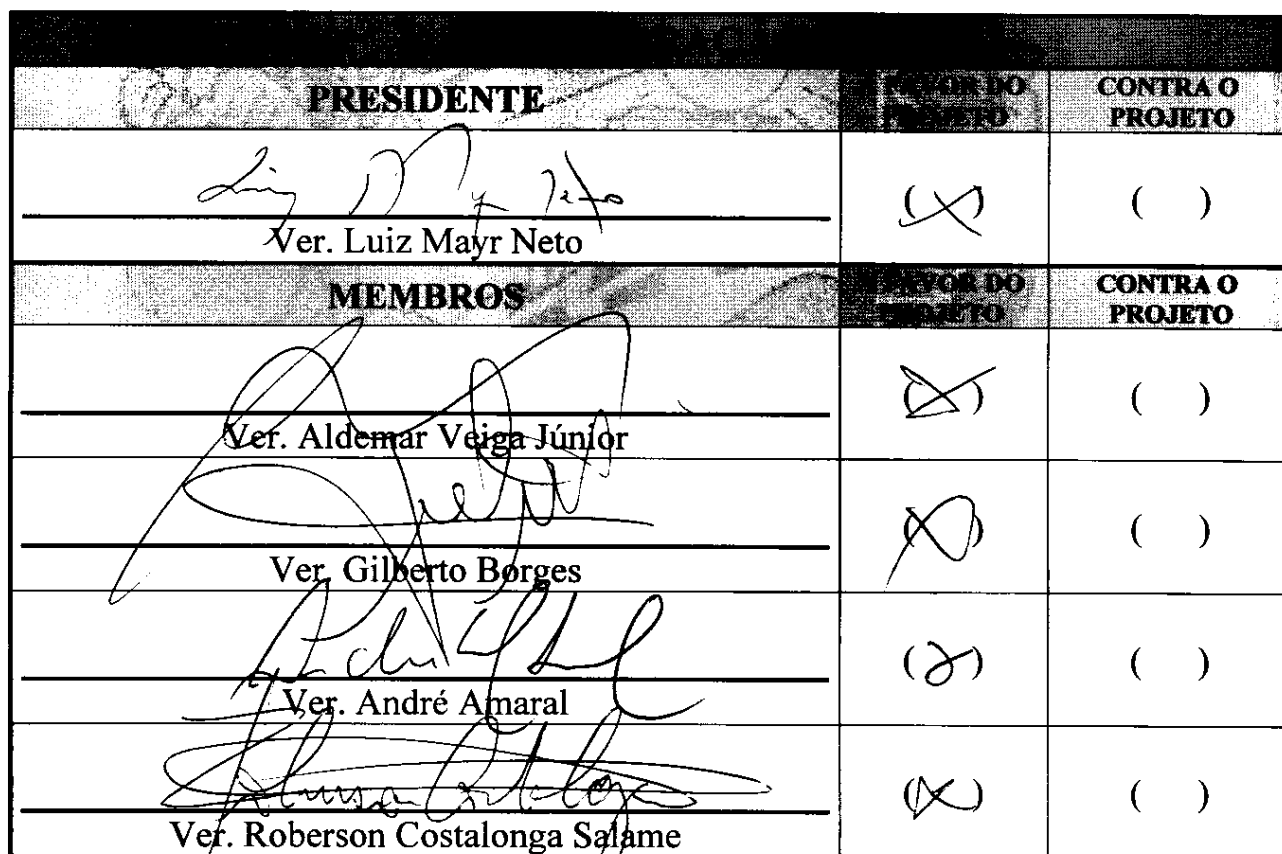 PRESIDENTE
FAVOR DO PROJETO
CONTRA O PROJETO
Luiz Mayr Neto
(X)
( )
Ver. Luiz Mayr Neto
MEMBROS
FAVOR DO PROJETO
CONTRA O PROJETO
(X)
( )
Ver. Aldemar Veiga Júnior
(X)
( )
Ver. Gilberto Borges
( )
Ver. André Amaral
(X)
( )
Ver. Roberson Costalonga Salame